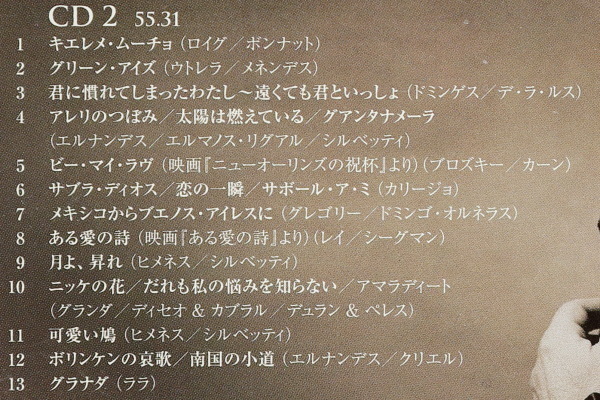 CD 2 55.31
1 キエレメ・ムーチョ（ロイグ／ボンナット）
2 グリーン・アイズ（ウトレラ／メネンデス）
3 君に慣れてしまったわたし～遠くても君といっしょ（ドミンゲス／デ・ラ・ルス）
4 アレリのつぼみ／太陽は燃えている／グアンタナメーラ
（エルナンデス／エルマノス・リグアル／シルベッティ）
5 ビー・マイ・ラヴ（映画『ニューオーリンズの祝杯』より）（ブロズキー／カーン）
6 サブラ・ディオス／恋の一瞬／サボール・ア・ミ（カリージョ）
7 メキシコからブエノス・アイレスに（グレゴリー／ドミンゴ・オルネラス）
8 ある愛の詩（映画『ある愛の詩』より）（レイ／シーグマン）
9 月よ、昇れ（ヒメネス／シルベッティ）
10 ニッケの花／だれも私の悩みを知らない／アマラディート
（グランダ／ディセオ & カブラル／デュラン & ペレス）
11 可愛い鳩（ヒメネス／シルベッティ）
12 ボリンケンの哀歌／南国の小道（エルナンデス／クリエル）
13 グラナダ（ララ）